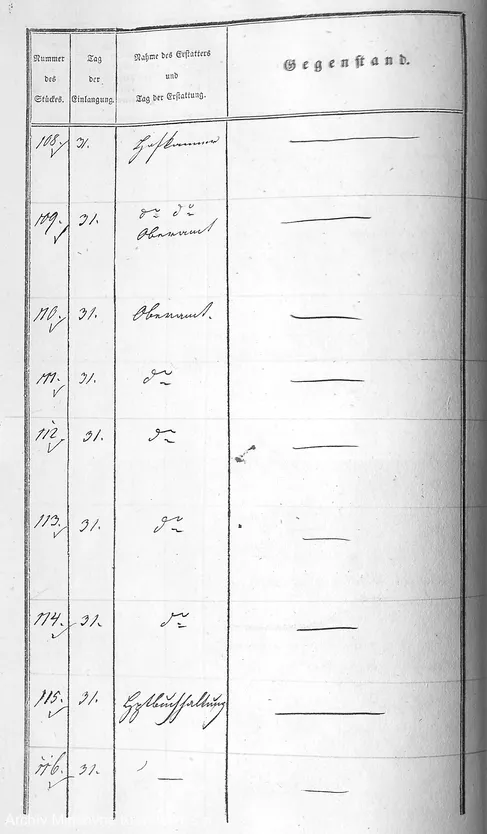 Nummer
des
Stückes.
Tag
der
Einlangung.
Nahme des Erstatters
und
Tag der Erstattung.
Gegenstand.
108. 31. Hofkammer
109. 31. do do
Oberamt
110. 31. Oberamt.
111. 31. do
112 31. do
113. 31. do
114. 31. do
115. 31. Hptbuchhaltung
116. 31. —
Archiv